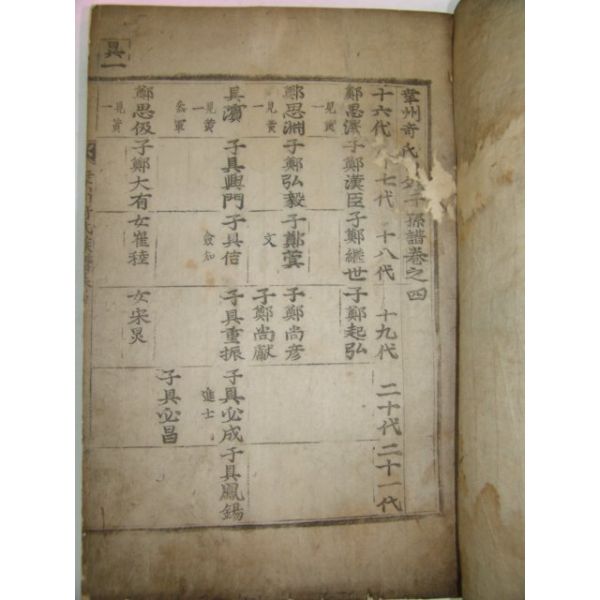 幸州奇氏外子孫譜卷之四
十六代 十七代 十八代 十九代 二十代 二十一代
鄭思漢 子鄭漢臣 子鄭繼世 子鄭起弘
一見黃
鄭思淵 子鄭弘毅 子鄭蓂 子鄭尚彦
一見黃 文
子鄭尚獻
具濱 子具興門 子具信 子具重振 子具必成 子具鳳錫
一見黃 僉知 進士
參軍
子具必昌
鄭思伋 子鄭大有 女崔稑 女宋炅
一見黃
具一